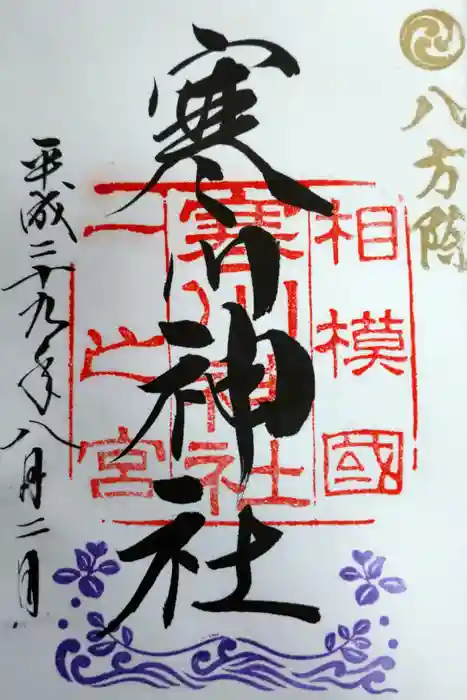 八方除
寒川神社
相模國
寒川神社
一之宮
平成二十九年八月二日